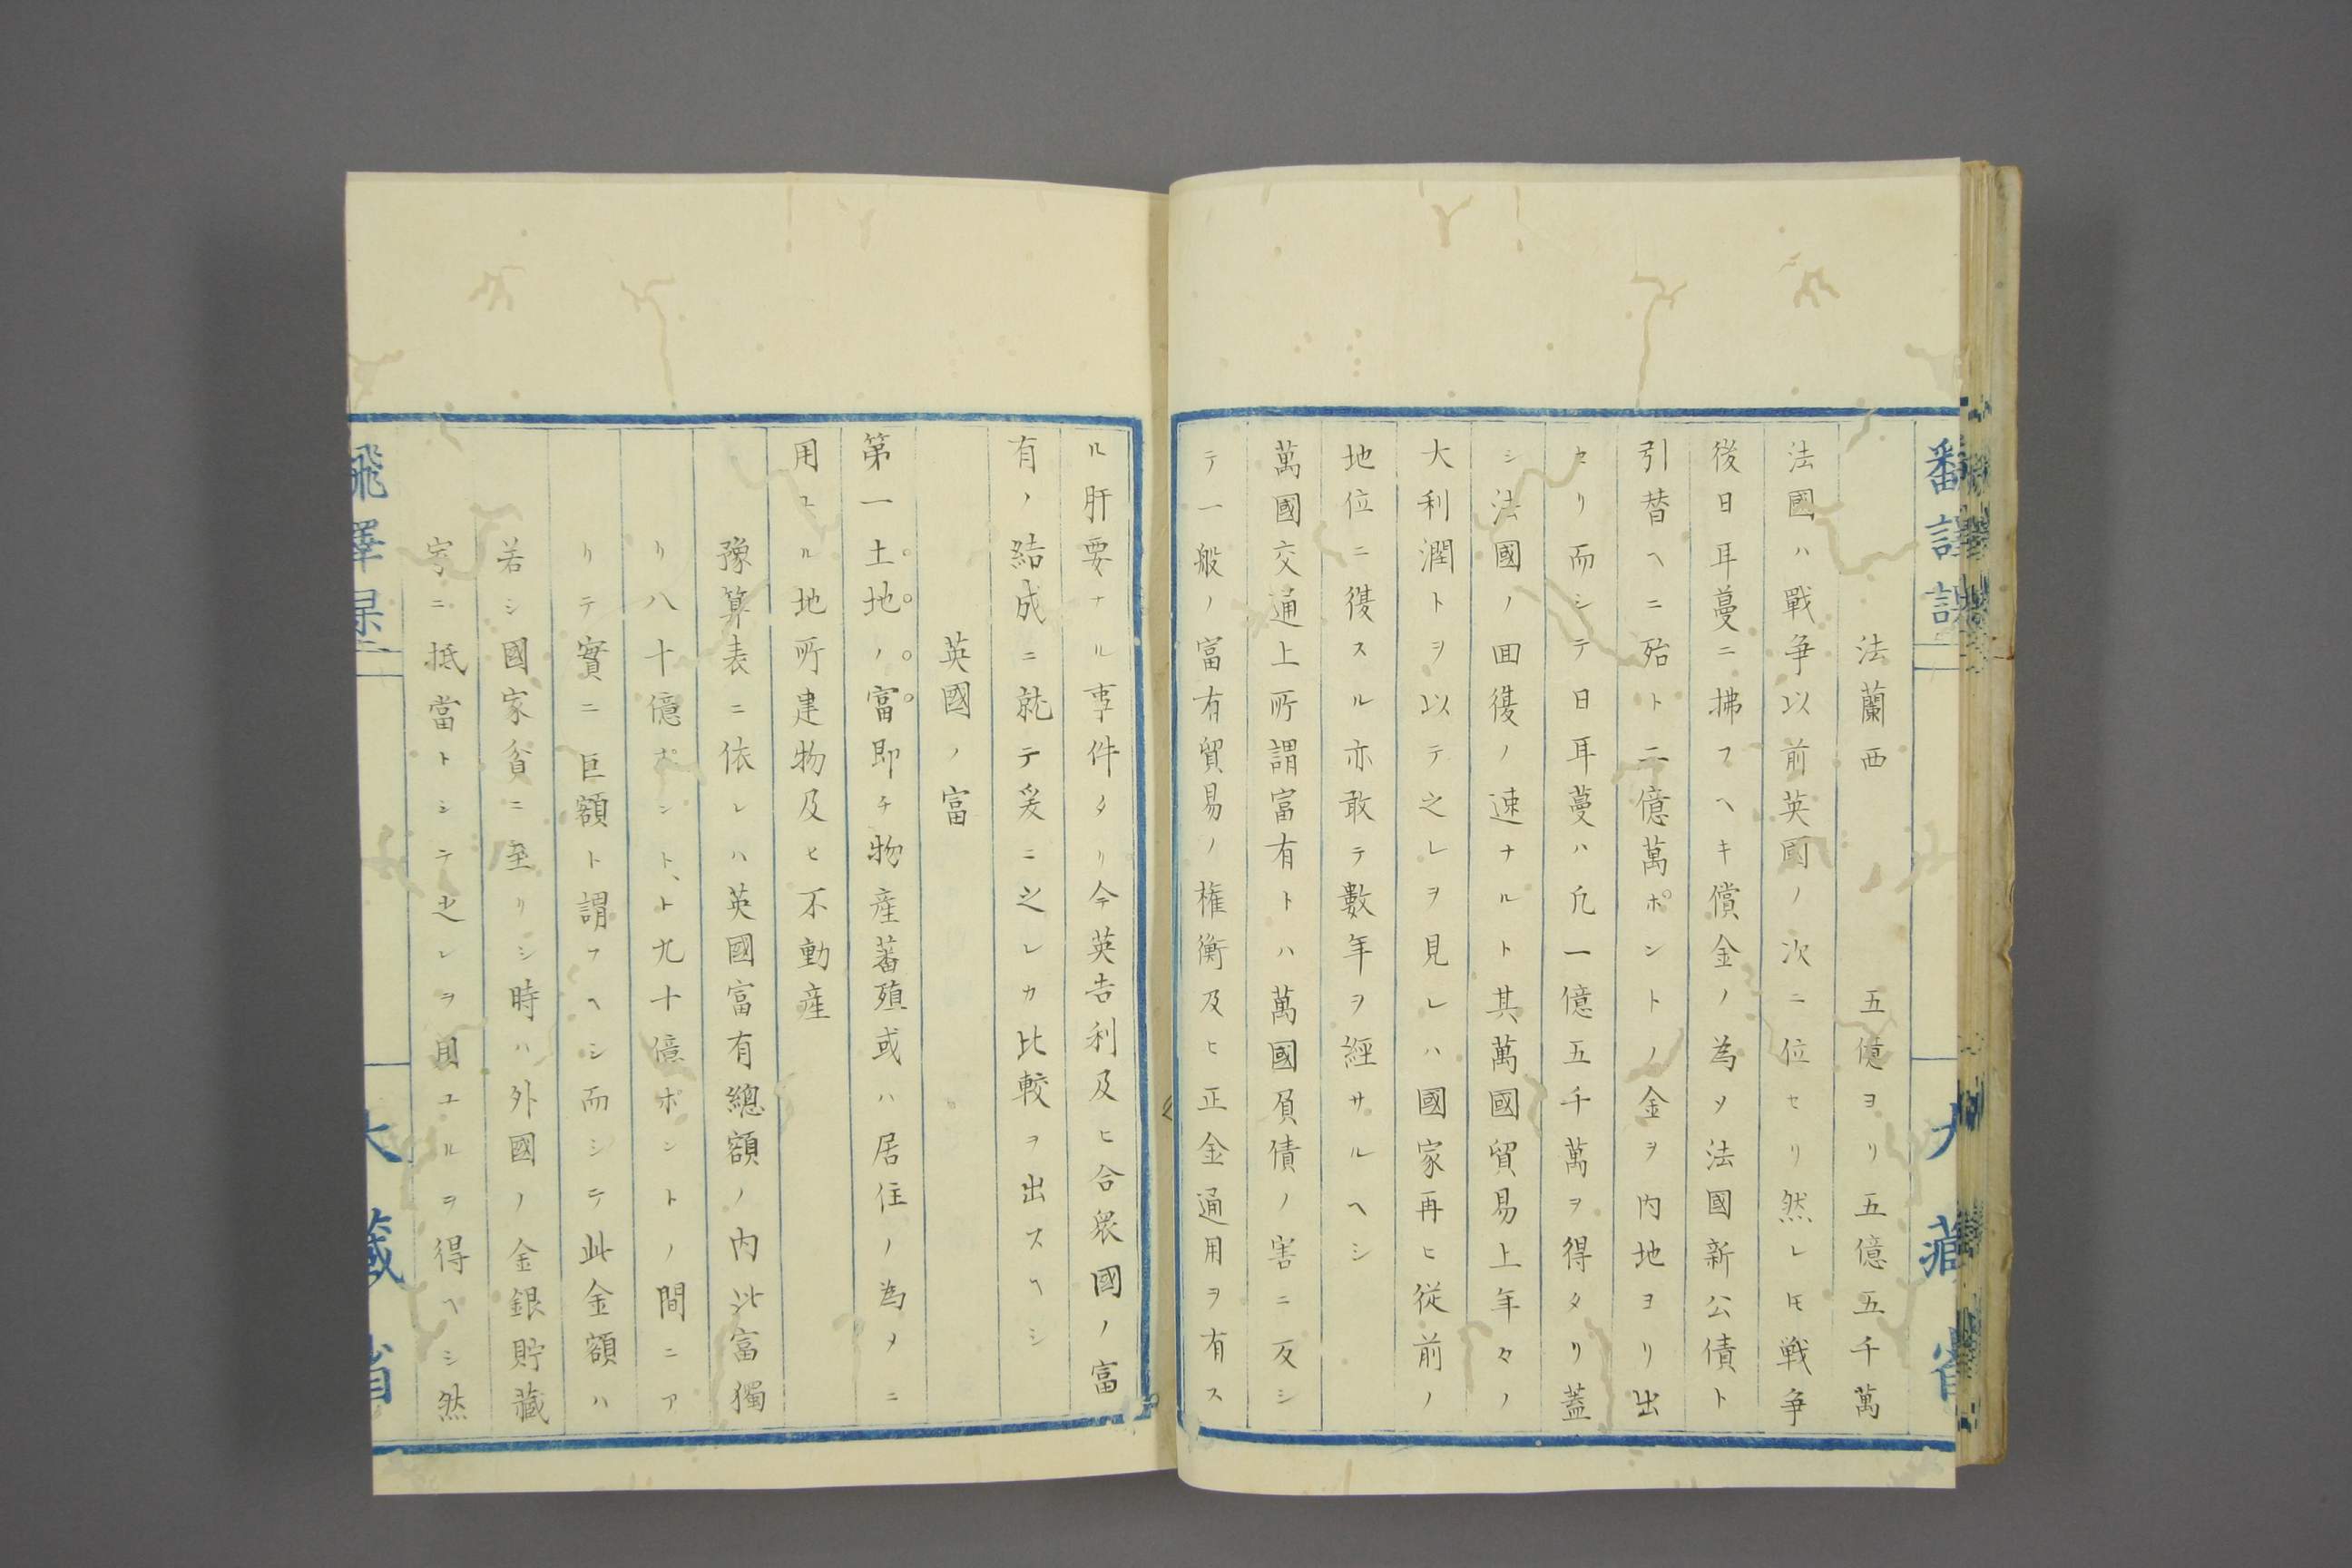 法蘭西　五億ヨリ五億五千萬
法國ハ戰争以前英國ノ次ニ位セリ然レ𪜈戦争
後日耳蔓ニ拂フヘキ償金ノ為メ法國新公債ト
引替ヘニ殆ト二億萬ポントノ金ヲ内地ヨリ出
セリ而シテ日耳蔓ハ凢一億五千萬ヲ得タリ蓋
シ法國ノ囬復ノ速ナルト其萬國貿易上年々ノ
大利潤トヲ以テ之レヲ見レハ國家再ヒ従前ノ
地位ニ復スル亦敢テ數年ヲ經サルヘシ
萬國交通上所謂富有トハ萬國負債ノ害ニ反シ
テ一般ノ富有貿易ノ権衡及ヒ正金通用ヲ有ス
ル肝要ナル事件タリ今英吉利及ヒ合衆國ノ富
有ノ結成ニ就テ爰ニ之レカ比較ヲ出スヘシ
英國ノ富
第一土地ノ富即チ物産蕃殖或ハ居住ノ為メニ
用ユル地所建物及ヒ不動産
豫算表ニ依レハ英國富有總額ノ内此富獨
リ八十億ポントヽ九十億ポントノ間ニア
リテ實ニ巨額ト謂フヘシ而シテ此金額ハ
若シ國家貧ニ至リシ時ハ外國ノ金銀貯藏
家ニ抵當トシテ之レヲ用ユルヲ得ヘシ然
大藏省